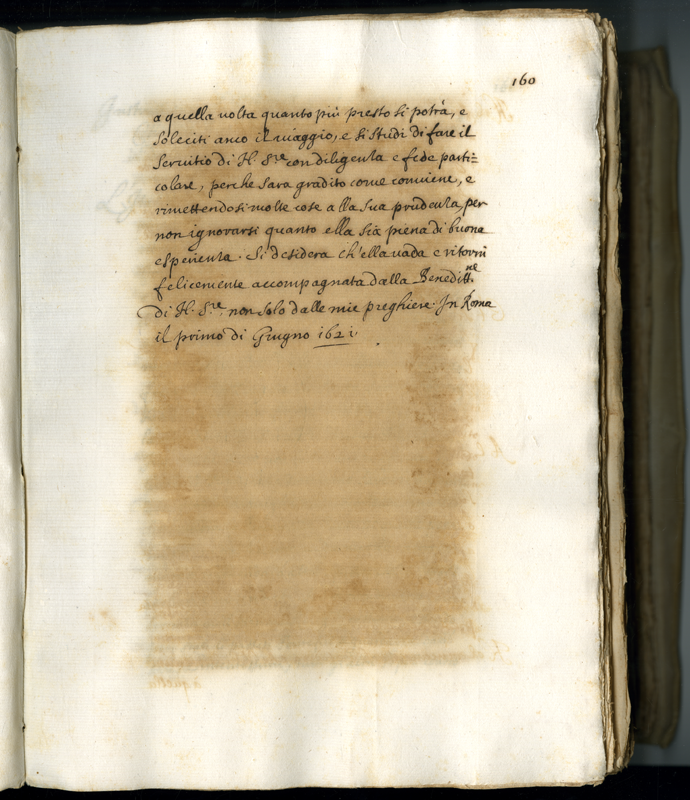 160
a quella volta quanto più presto si potrà, e
soleciti anco il uiaggio, e si studi di fare il
seruitio di N. Sre con diligenta e fede parti=
colare, perche sara gradito come conuiene, e
rimettendosi molte cose alla sua prudenta per
non ignorarsi quanto ella sia piena di buona
esperienta. Si desidera ch'ella uada e ritorni
felicemente accompagnata dalla Benedittne
di N. Sre, non solo dalle mie preghiere. In Roma
il primo di Giugno 1621.
à quella